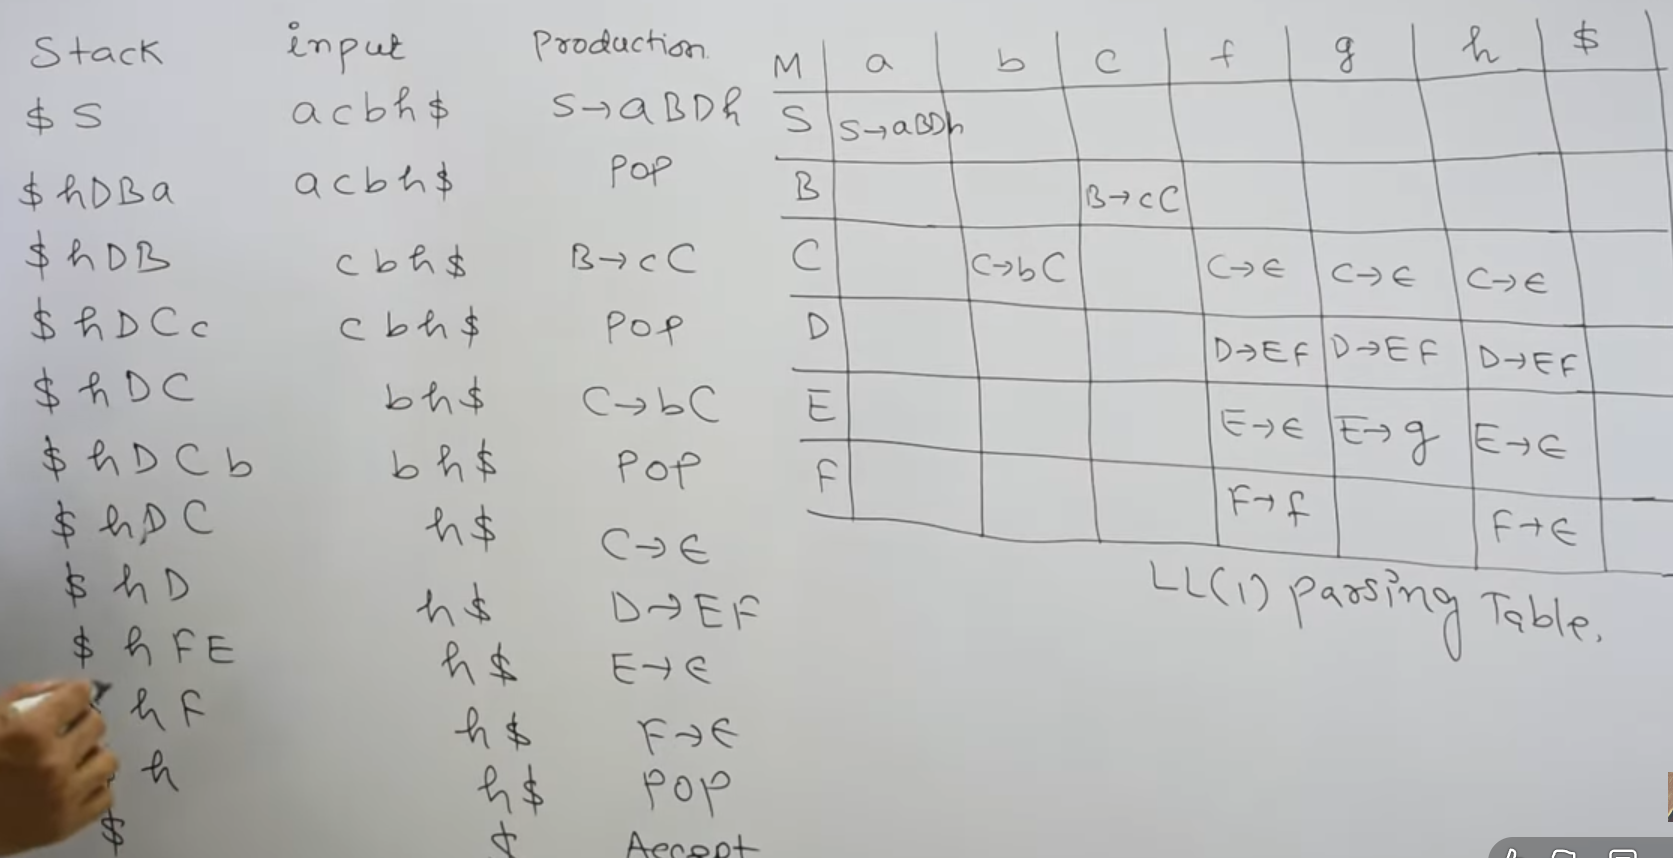 Stack input Production
$ S acbh$ S→aBDh
$ hDBa acbh$ POP
$ hDB cbh$ B→cC
$ hDCc cbh$ POP
$ hDC bh$ C→bC
$ hDCb bh$ POP
$ hDC h$ C→ε
$ hD h$ D→EF
$ hFE h$ E→ε
hF h$ F→ε
h h$ POP
$ $ Accept
M a b c f g h $
S S→aBDh
B B→cC
C C→bC C→ε C→ε C→ε
D D→EF D→EF D→EF
E E→ε E→g E→ε
F F→f F→ε
LL(1) parsing Table.